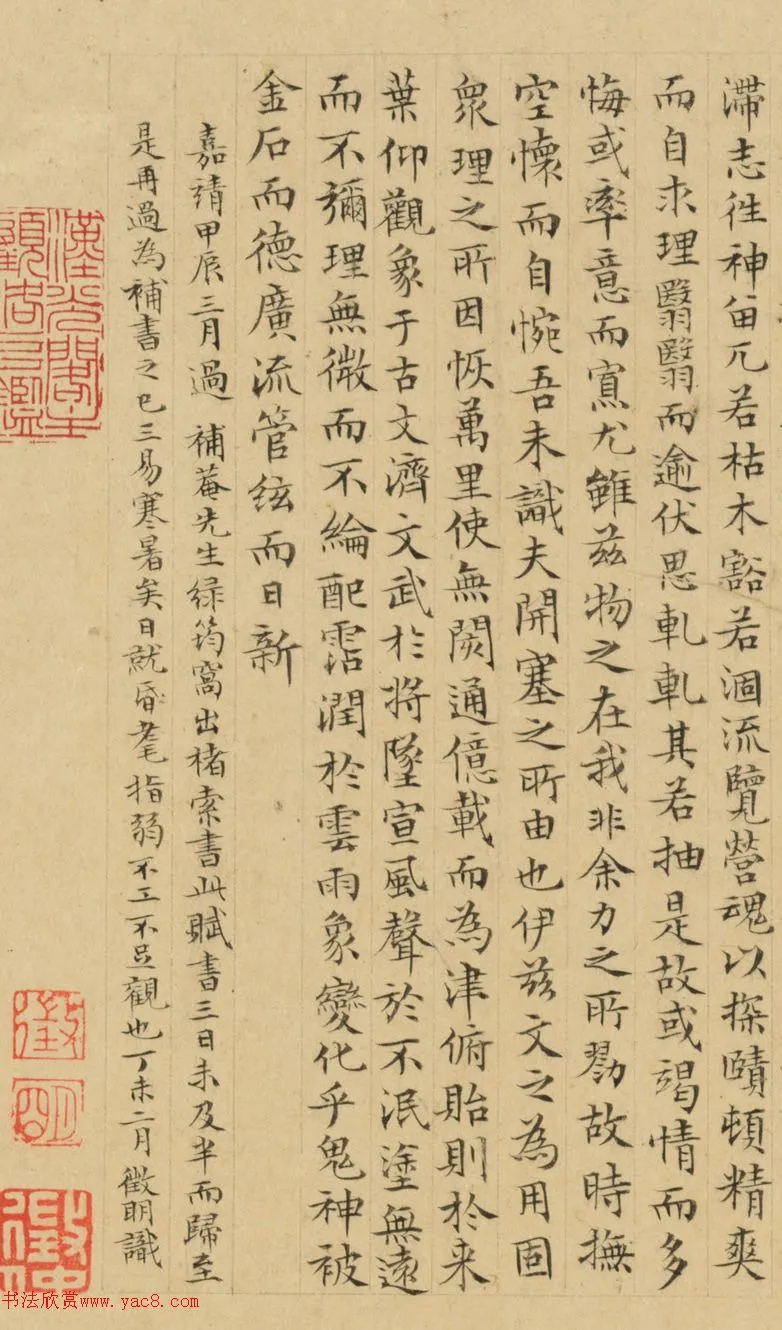 滯志徃神畱兀若枯木豁若涸流覽營魂以探賾頓精爽
而自求理翳翳而逾伏思軋軋其若抽是故或竭情而多
悔或率意而寡尤雖兹物之在我非余力之所勠故時撫
空懷而自惋吾未識夫開塞之所由也伊兹文之為用固
衆理之所因恢萬里使無閡通億載而為津俯貽則於来
葉仰觀象于古文濟文武於将墜宣風聲於不泯塗無遠
而不彌理無微而不綸配霑潤於雲雨象變化乎鬼神被
金石而德廣流管絃而日新
嘉靖甲辰三月過 補菴先生緑筠窩出楮索書此賦書三日未及半而歸至
是再過為補書之已三易寒暑矣日就昏耄指弱不工不足觀也丁未二月徵明識
漢光閣主
顧洛阜鑑
徵
明
徵仲
书法欣赏www.yac8.com